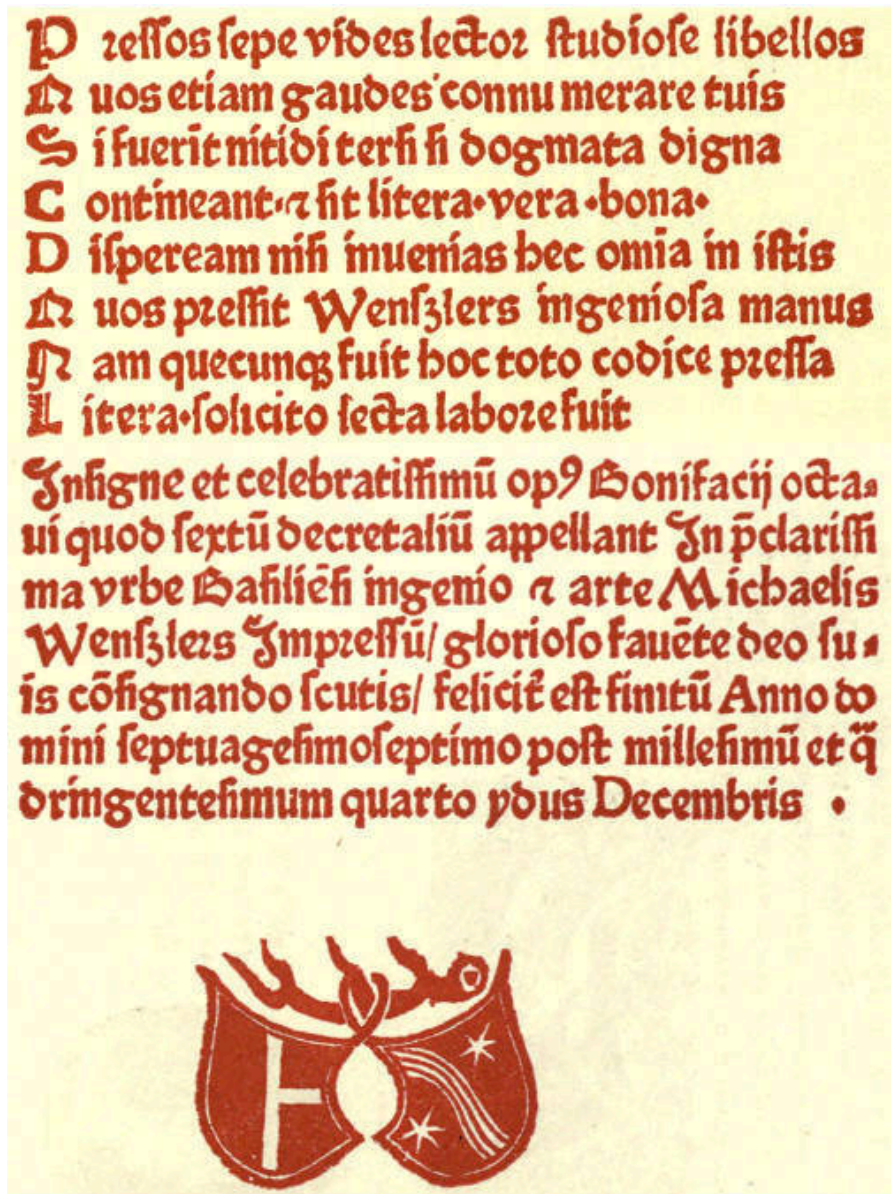 P ꝛeſſos ſepe vides lectoꝛ ſtudioſe libellos
Q uos etiam gaudes connu merare tuis
S i fuerīt nitidi terſi ſi dogmata digna
C ontineant·⁊ ſit litera·vera·bona·
D iſpeream niſi inuenias hec omīa in iſtis
Q uos pꝛeſſit Wenſzlers ingenioſa manus
N am quecunqꝫ fuit hoc toto codice pꝛeſſa
L itera·ſolicito lecta laboꝛe fuit
Inſigne et celebratiſſimū opꝰ Bonifacij octa⸗
ui quod ſextū decretaliū appellant In p̄clariſſi
ma vrbe Baſiliēſi ingenio ⁊ arte Michaelis
Wenſzleꝛs Impꝛeſſū/ glorioſo fauēte deo ſu⸗
is cōſignando ſcutis/ felicit̄ eſt finitū Anno do
mini ſeptuageſimoſeptimo poſt milleſimū et q̄
dringenteſimum quarto ydus Decembris ·